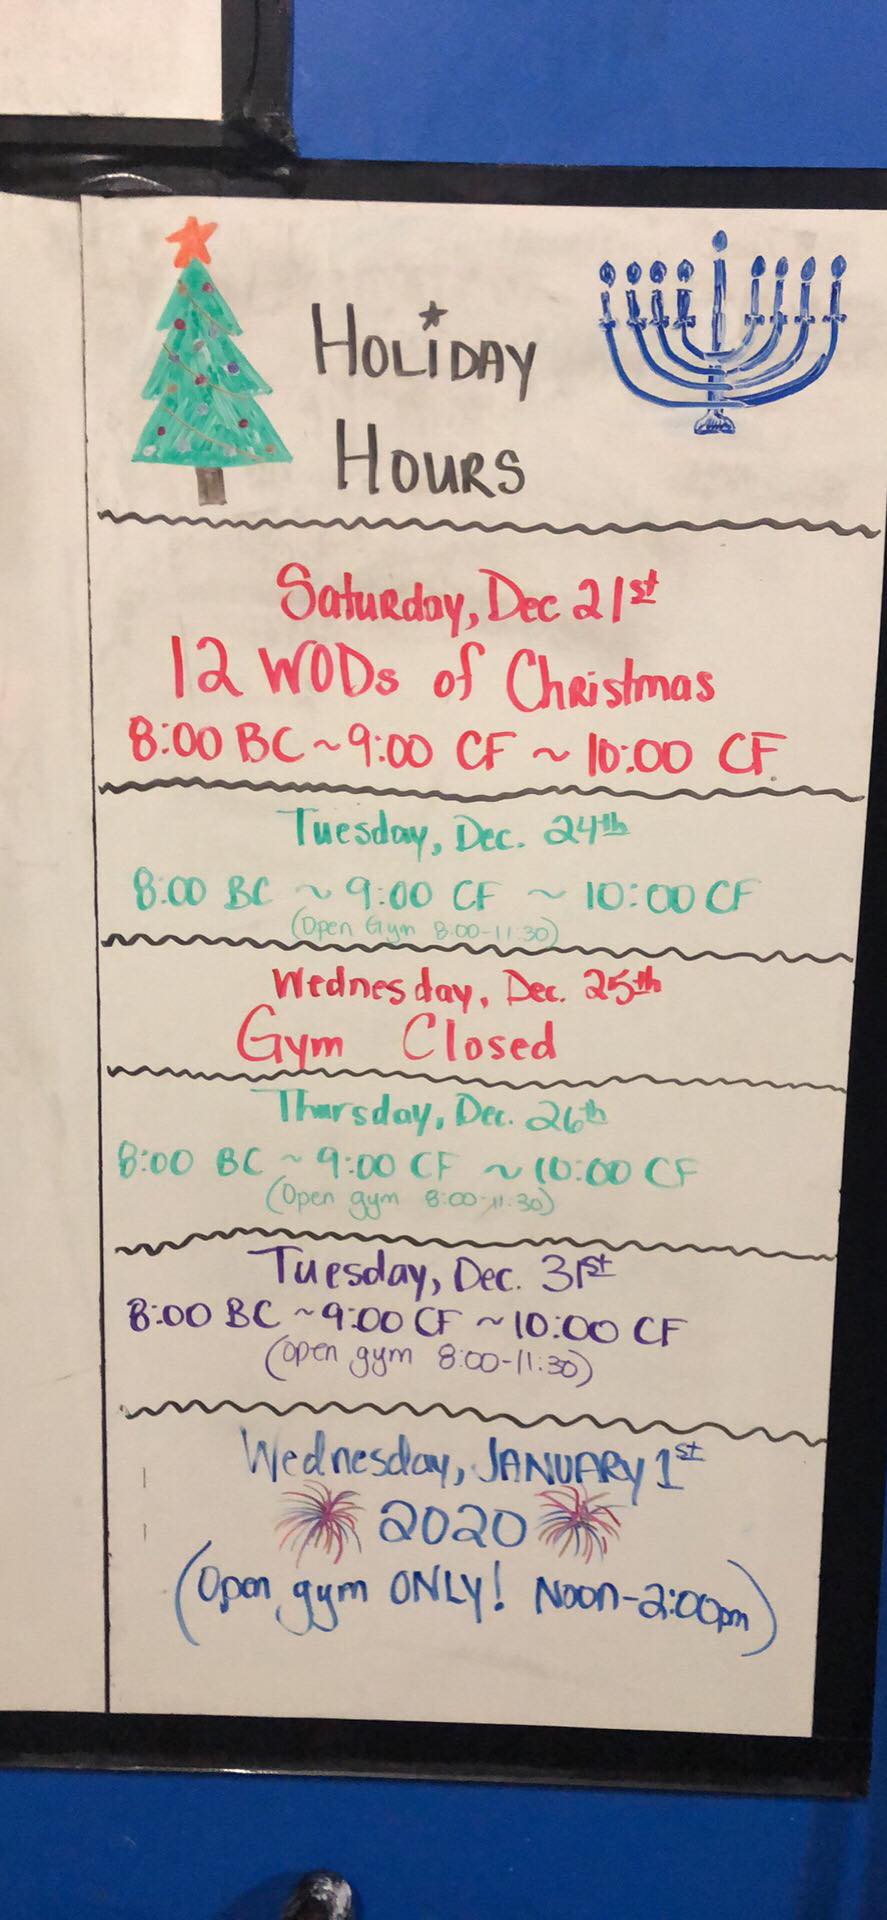 HOLIDAY
HOURS
Saturday, Dec 21st
12 WODs of Christmas
8:00 BC ~ 9:00 CF ~ 10:00 CF
Tuesday, Dec. 24th
8:00 BC ~ 9:00 CF ~ 10:00 CF
(Open Gym 8:00-11:30)
Wednesday, Dec. 25th
Gym Closed
Thursday, Dec. 26th
8:00 BC ~ 9:00 CF ~ 10:00 CF
(Open gym 8:00-11:30)
Tuesday, Dec. 31st
8:00 BC ~ 9:00 CF ~ 10:00 CF
(open gym 8:00-11:30)
Wednesday, JANUARY 1st
2020
(Open gym ONLY! Noon-2:00pm)